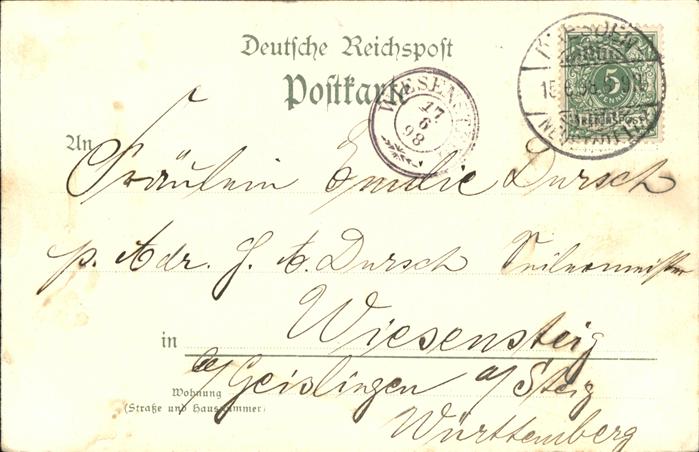 Deutsche Reichspost
Postkarte
WIESENST
17
6
98
5
REICHSPOST
An
Fräulein Emilie Dursch
p. Adr. J. A. Dursch Seilermeister
in Wiesensteig
a/Geislingen a/Steig
Wohnung
(Straße und Hausnummer)
Württemberg